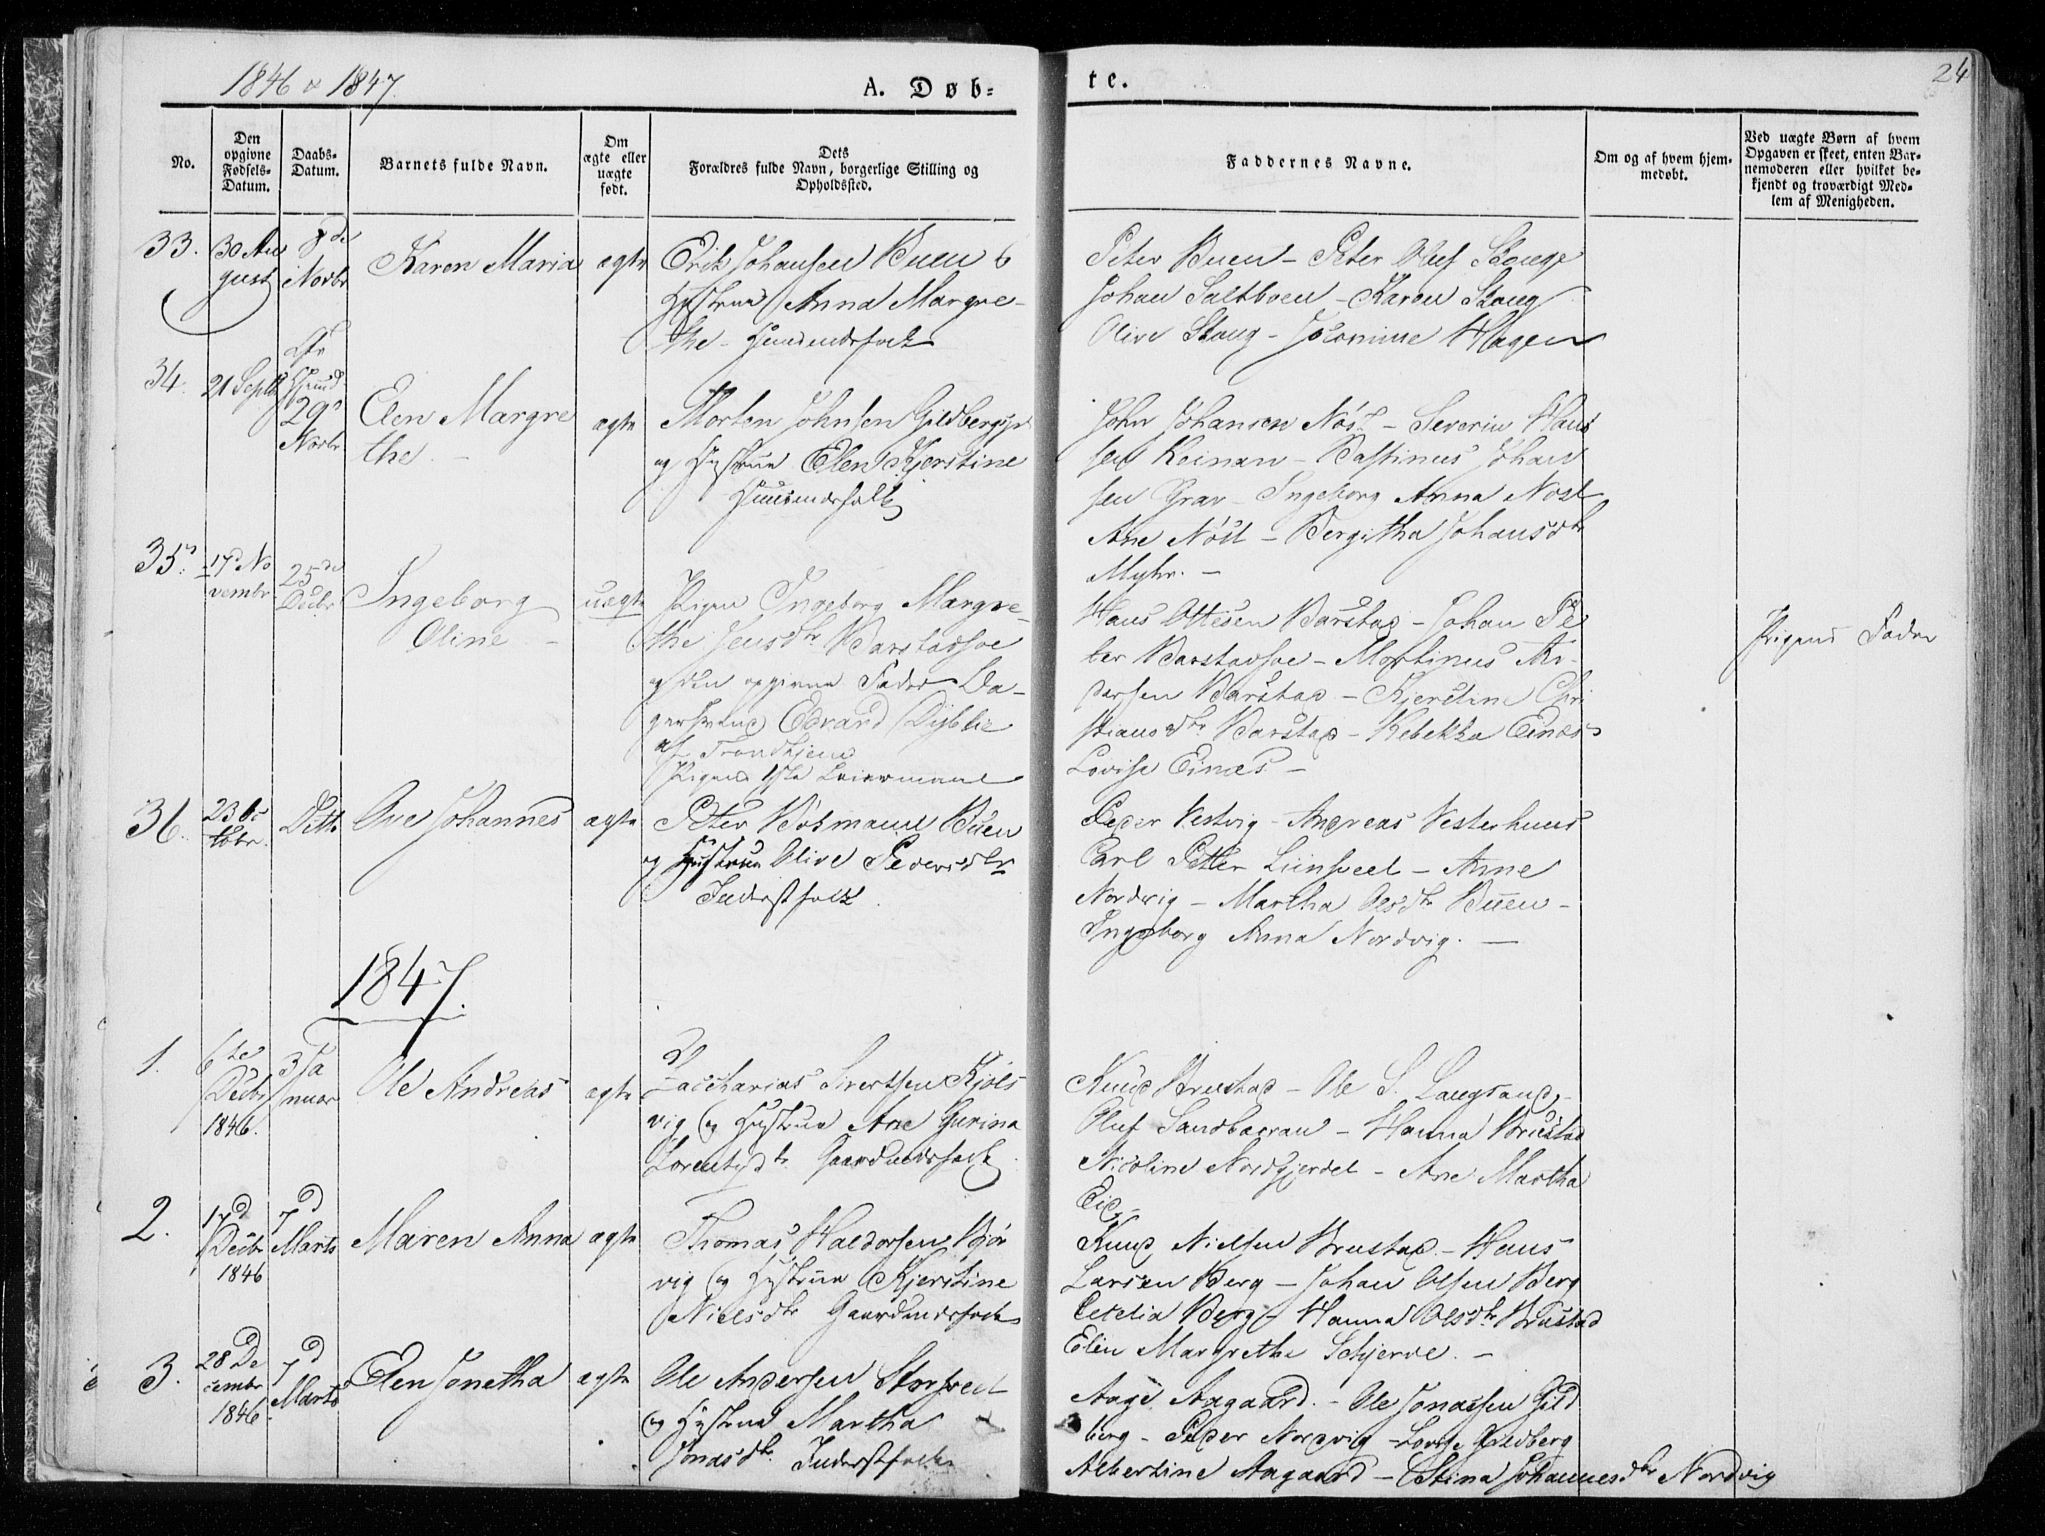 1846 & 1847.
A. Døb-
te.
24
No.
Den opgivne Fødsels-Datum.
Daabs-Datum.
Barnets fulde Navn.
Om ægte eller uægte født.
Dets Forældres fulde Navn, borgerlige Stilling og Opholdssted.
Faddernes Navne.
Om og af hvem hjem-medøbt.
Ved uægte Børn af hvem Opgaven er skeet, enten Bar-nemoderen eller hvilket be-kjendt og troværdigt Med-lem af Menigheden.
33.
30 Au
gust
8de
Novbr
Karen Maria
ægte
Erik Johansen Buen &
Hustrue Anna Margre-
the - Huusmdsfolk
Peter Buen - Peter Oluf Skauge
Johan Saltboen - Karen Skaug
Olive Skaug - Hagen
34.
21 Septb
29
Novbr
Elen Margre
the -
ægte
Morten Johnsen Gildbergs
og Hustrue Elen Kjerstine
Huusmdsfolk
John Johansen Nøst - Severin Han
sen Reinan - Bastinus Johan
sen Grav - Ingeborg Anna Nøst
Ane Nøst - Bergitha Johansdtr
Myhr. -
35.
17d No
vembr
25de
Decbr
Ingeborg
Oline -
uægte
Pigen Ingeborg Margre-
the Jensdtr Barstadsoe
og den opgivne Fader Da-
gersvend Edvard
af Trondhjem
Pigens 1ste Leiermaal
Hans Ottesen Barstad - Johan Pe
ter Barstadsoe - Martinus An-
dersen Barstad - Kjerstine Chri
stiansdtr Barstad - Rebekka Einæs
Lovise Einæs -
Pigens Fader
36.
23
Ditto
Ove Johannes
ægte
Peter Bosmann Buen
og Hustrue Olive Pedersdtr
Inderstfolk.
Peder Nestvig - Andreas Vesterhuus
Carl Petter Liinsveet - Anne
Nordvig - Martha Olsdtr Buen -
Ingeborg Anna Nordvig. -
1847.
1.
6te
Decbr
1846.
3 Ja
nuar
Ole Andreas
ægte
Zaccharias Sivertsen Kjøls
vig og Hustrue Ane Gurina
Lorentsdtr Gaardmdsfolk
Knud Brustad - Ole S. Langsand -
Oluf - Hanna Brustad
Nicoline Nordfjerdet - Ane Martha
Eid. -
2.
17d
Decbr
1846
7d
Marts
Maren Anna
ægte
Thomas Haldorsen Bjør
vig og Hustrue Kjerstine
Nielsdtr Gaardmdsfolk
Knud Nielsen Brustad - Hans
Larsen Berg - Johan Olsen Berg
Cecelia Berg - Hanna Olsdtr Brustad
Elen Margrethe Schjerve. -
3.
28 De
cembr
1846.
7d
Marts
Elen Jonetha
ægte
Ole Andersen Storsveet
og Hustrue Martha
Jonasdtr. Inderstfolk
Aage Aagaard. - Ole Jonassen Gild
berg - Peder Nordvig - Lovise Gildberg
Albertine Aagaard - Stina Johannesdtr Nordvig